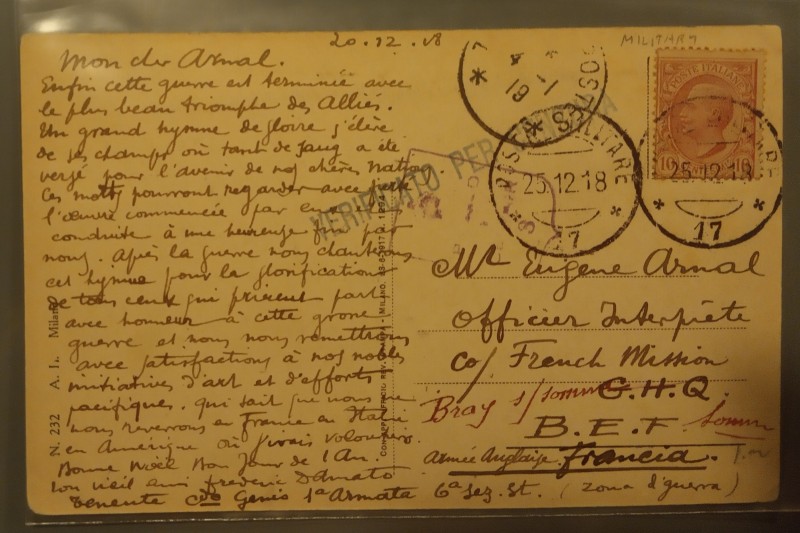 20.12.18
MILITARY
Mon cher Arnal.
Enfin cette guerre est terminée avec
le plus beau triomphe des Alliés.
Un grand hymne de gloire s'élève
de ses champs où tant de sang a été
versé pour l'avenir de nos chères
Ces morts pourront regarder avec
l'œuvre commencée par eux
conduite à une heureuse fin par
nous. Après la guerre nous chanterons
cet hymne pour la glorification
de tous ceux qui prirent part
avec honneur à cette grosse
guerre et nous nous remettrons
avec satisfactions à nos nobles
initiatives d'art et d'efforts
pacifiques. Qui sait que nous
nous reverrons en France en Italie
en Amérique où j'irais volontiers
Bonne Noël Bon Jour de l'An.
ton vieil ami Frederic Damato
Tenente Genio 1a Armata 6a Sez. St. (Zona d'guerra)
N. 232 A. I. Milano
VERIFICATO PER CENSURA
POSTA MILITARE
25.12.18
17
POSTE ITALIANE
10 10
25.12.18
17
Mr Eugene Arnal
Officier Interprète
c/o French Mission
G.H.Q.
Bray s/somme
B.E.F. Somme
Armée Anglaise Francia.